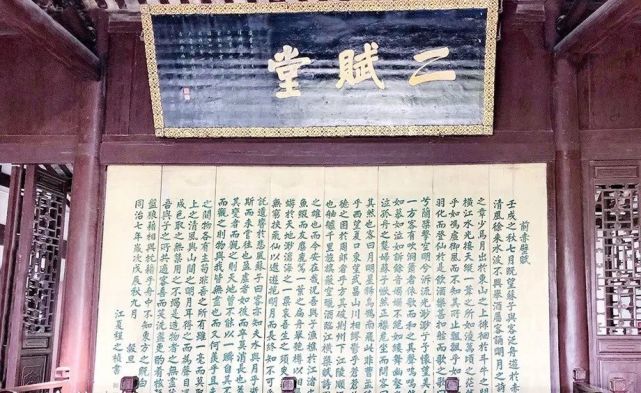 二賦堂
前赤壁賦
壬戌之秋七月既望蘇子與客泛舟遊於赤
清風徐來水波不興舉酒屬客誦明月之詩
之章少焉月出於東山之上徘徊於斗牛之間
橫江水光接天縱一葦之所如凌萬頃之茫
乎如馮虛御風而不知其所止飄飄乎如
羽化而登仙於是飲酒樂甚扣舷而歌之歌
兮蘭槳擊空明兮泝流光渺渺兮予懷望美人
一方客有吹洞簫者依歌而和之其聲嗚嗚
如慕如泣如訴餘音嫋嫋不絕如縷舞幽壑
泣孤舟之嫠婦蘇子愀然正襟危坐而問客
其然也客曰月明星稀烏鵲南飛此非曹孟
乎西望夏口東望武昌山川相繆鬱乎蒼
德之困於周郎者乎方其破荊州下江陵順
也舳艫千里旌旗蔽空釃酒臨江橫槊賦詩
之雄也而今安在哉況吾與子漁樵於江渚
魚蝦而友麋鹿駕一葉之扁舟舉匏樽以相
蜉於天地渺滄海之一粟哀吾生之須臾
無窮挾飛仙以遨遊抱明月而長終知不可
託遺響於悲風蘇子曰客亦知夫水與月乎
斯而未嘗往也盈虛者如彼而卒莫消長也
其變者而觀之則天地曾不能以一瞬自其不
而觀之則物與我皆無盡也而又何羨乎且夫
之間物各有主苟非吾之所有雖一毫而莫取
上之清風與山間之明月耳得之而為聲目遇
成色取之無禁用之不竭是造物者之無盡藏
吾與子之所共適客喜而笑洗盞更酌肴核
盤狼籍相與枕藉乎舟中不知東方之既白
同治七年歲次戊辰秋九月 穀旦
江夏程之楨書